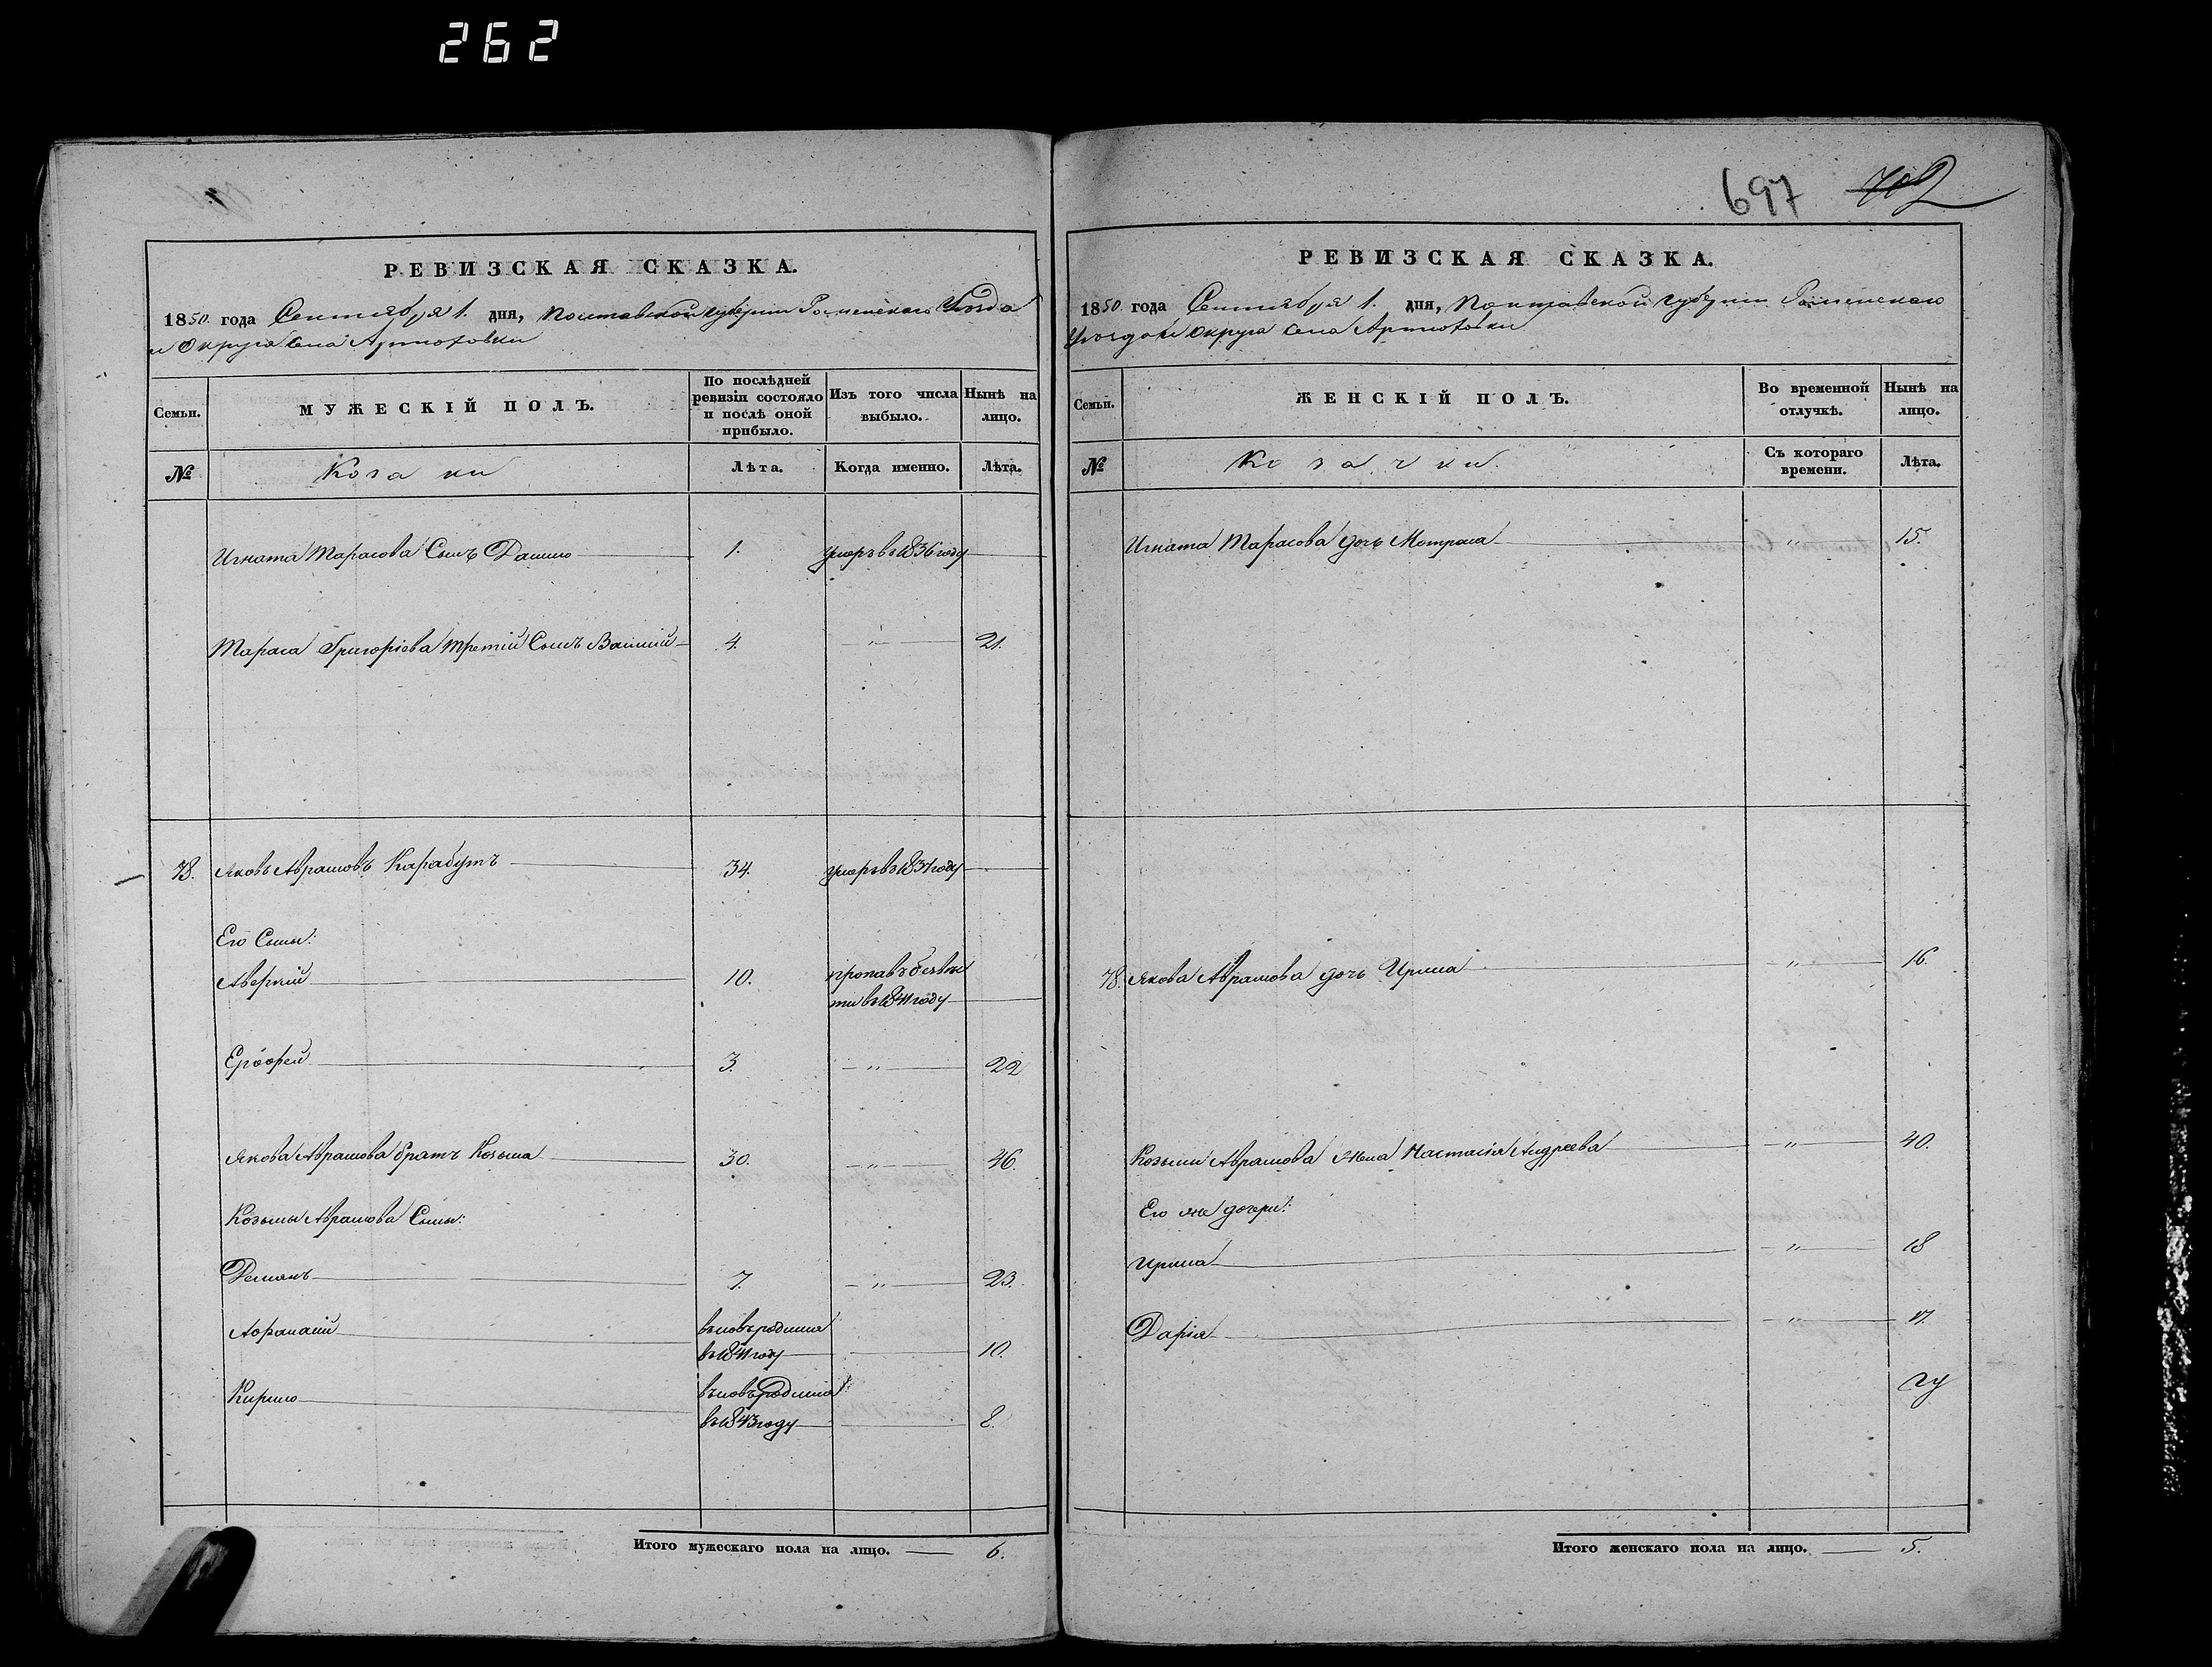 262
697 702
РЕВИЗСКАЯ СКАЗКА.
1850. года Сентября 1. дня, Полтавской губернии Роменскаго Уѣзда
и Округа Села Артюховки
Семьи.
МУЖЕСКІЙ ПОЛЪ.
По послѣдней ревизіи состояло и послѣ оной прибыло.
Изъ того числа выбыло.
Нынѣ на лицо.
№
Козаки
Лѣта.
Когда именно.
Лѣта.
Игната Тарасова Сынъ Данило 1. умеръ в 1836 году
Тараса Григоріева третій Сынъ Василій 4. " 21.
78. Яковъ Аврамовъ Карабутъ 34. умеръ в 1837 году
Его Сыны:
Аверкій 10. пропавъ безвѣс
ти въ 1841 году
Ерофей 3. " 22
Якова Аврамова братъ Козьма 30. " 46.
Козьмы Аврамова Сыны:
Демянъ 7. " 23.
Афанасій вновь родился
въ 1841 году 10.
Кирило вновь родился
въ 1843 году 8.
Итого мужескаго пола на лицо. — 6.
РЕВИЗСКАЯ СКАЗКА.
1850. года Сентября 1. дня, Полтавской губерніи Роменскаго
Уѣзда и округа Села Артюховки
Семьи.
ЖЕНСКІЙ ПОЛЪ.
Во временной отлучкѣ.
Нынѣ на лицо.
№
Козачки.
Съ котораго времени.
Лѣта.
Игната Тарасова дочь Мотрона " 15.
78. Якова Аврамова дочь Ирина " 16.
Козьмы Аврамова жена Настасія Андреева " 40.
Его же дочери:
Ирина " 18
Дарія "
Итого женскаго пола на лицо. — 5.